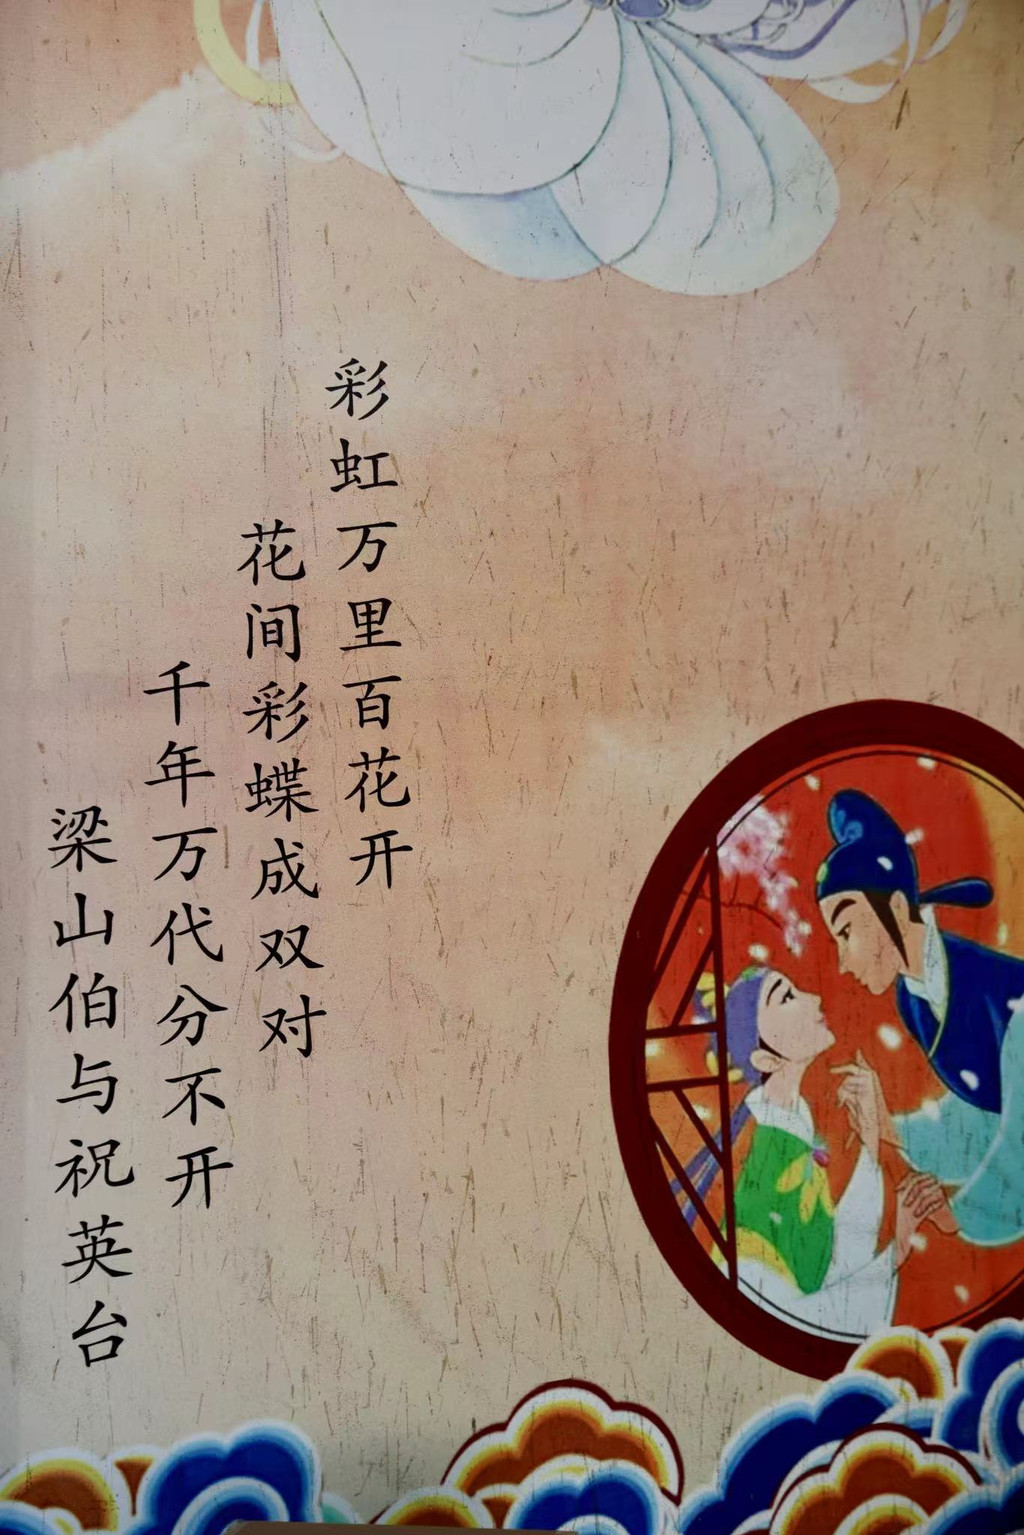 彩虹万里百花开
花间彩蝶成双对
千年万代分不开
梁山伯与祝英台